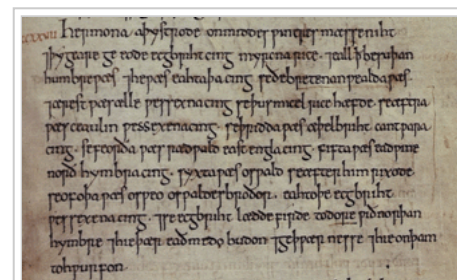 xxvii hermona aþystrode onmiddes ƿintres mæsseniht
⁊þy geare ge eode ecgbriht cing myrcna rice · ⁊eall ꝥ besuþan
humbre ƿæs ⁊he ƿæs eahtaþa cing sede bretenanƿealda ƿæs.
⁊ærest ƿæs ælle cing se þus micel rice hæfde. seæftra
ƿæs ceaulin ƿessexena cing · se þridda ƿæs æþelbriht cantƿara
cing · se feorða ƿæs rædƿald east engla cing · fifta ƿæs eadƿine
norð hymbra cing · syxta ƿæs osƿald se æfter him rixode
seofoþa ƿæs osƿeo osƿaldes broðor. eahtoþe ecgbriht
ƿessexena cing · ⁊se ecgbriht lædde firde to dore ƿið norþan
hymbre ⁊hie þær eadmedo budon ⁊geþƿærnesse ⁊hie onþam
tohƿurfon.